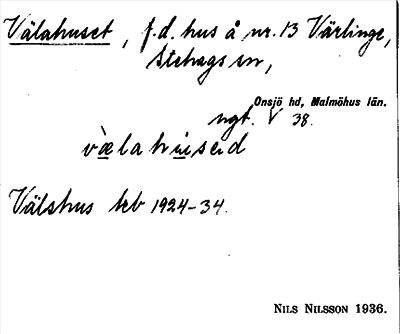 Välahuset, f.d. hus å nr. 13 Värlinge,
Stehags sn,
Onsjö hd, Malmöhus län.
ngt. V 38.
væ̀lahu̇sәd
Välshus kb 1924-34.
NILS NILSSON 1936.